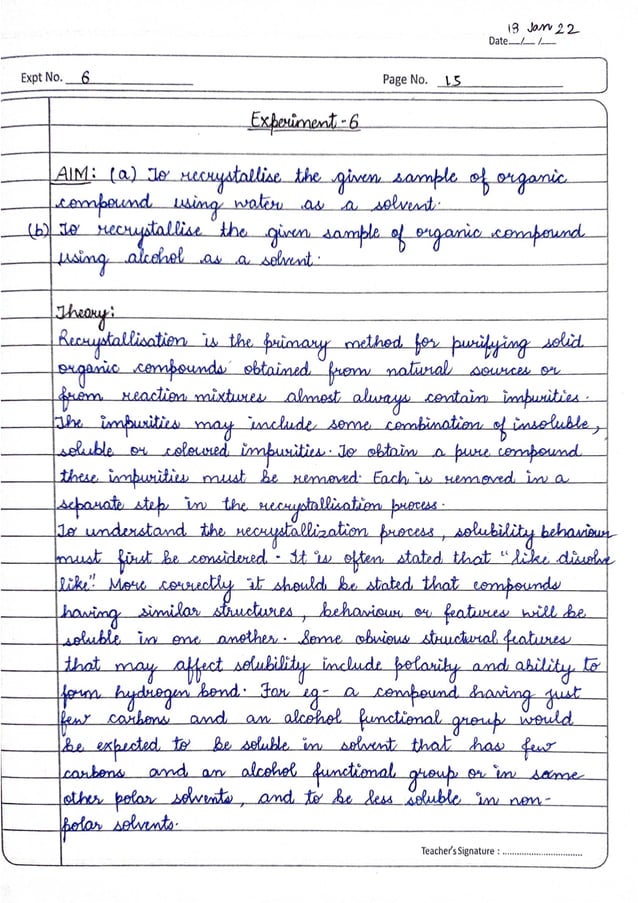 18 Jan 22
Date__/__/__
Expt No. 6
Page No. 15
Experiment-6
AIM: (a) To recrystallise the given sample of organic
compound using water as a solvent.
(b) To recrystallise the given sample of organic compound
using alcohol as a solvent.
Theory:
Recrystallisation is the primary method for purifying solid
organic compounds obtained from natural sources or
from reaction mixtures almost always contain impurities.
The impurities may include some combination of insoluble,
soluble or coloured impurities. To obtain a pure compound
these impurities must be removed. Each is removed in a
separate step in the recrystallisation process.
To understand the recrystallization process, solubility behaviour
must first be considered - It is often stated that "like dissolve
like". More correctly it should be stated that compounds
having similar structures, behaviour or features will be
soluble in one another. Some obvious structural features
that may affect solubility include polarity and ability to
form hydrogen bond. For eg - a compound having just
few carbons and an alcohol functional group would
be expected to be soluble in solvent that has few
carbons and an alcohol functional group or in some
other polar solvents, and to be less soluble in non-
polar solvents.
Teacher's Signature : ................................